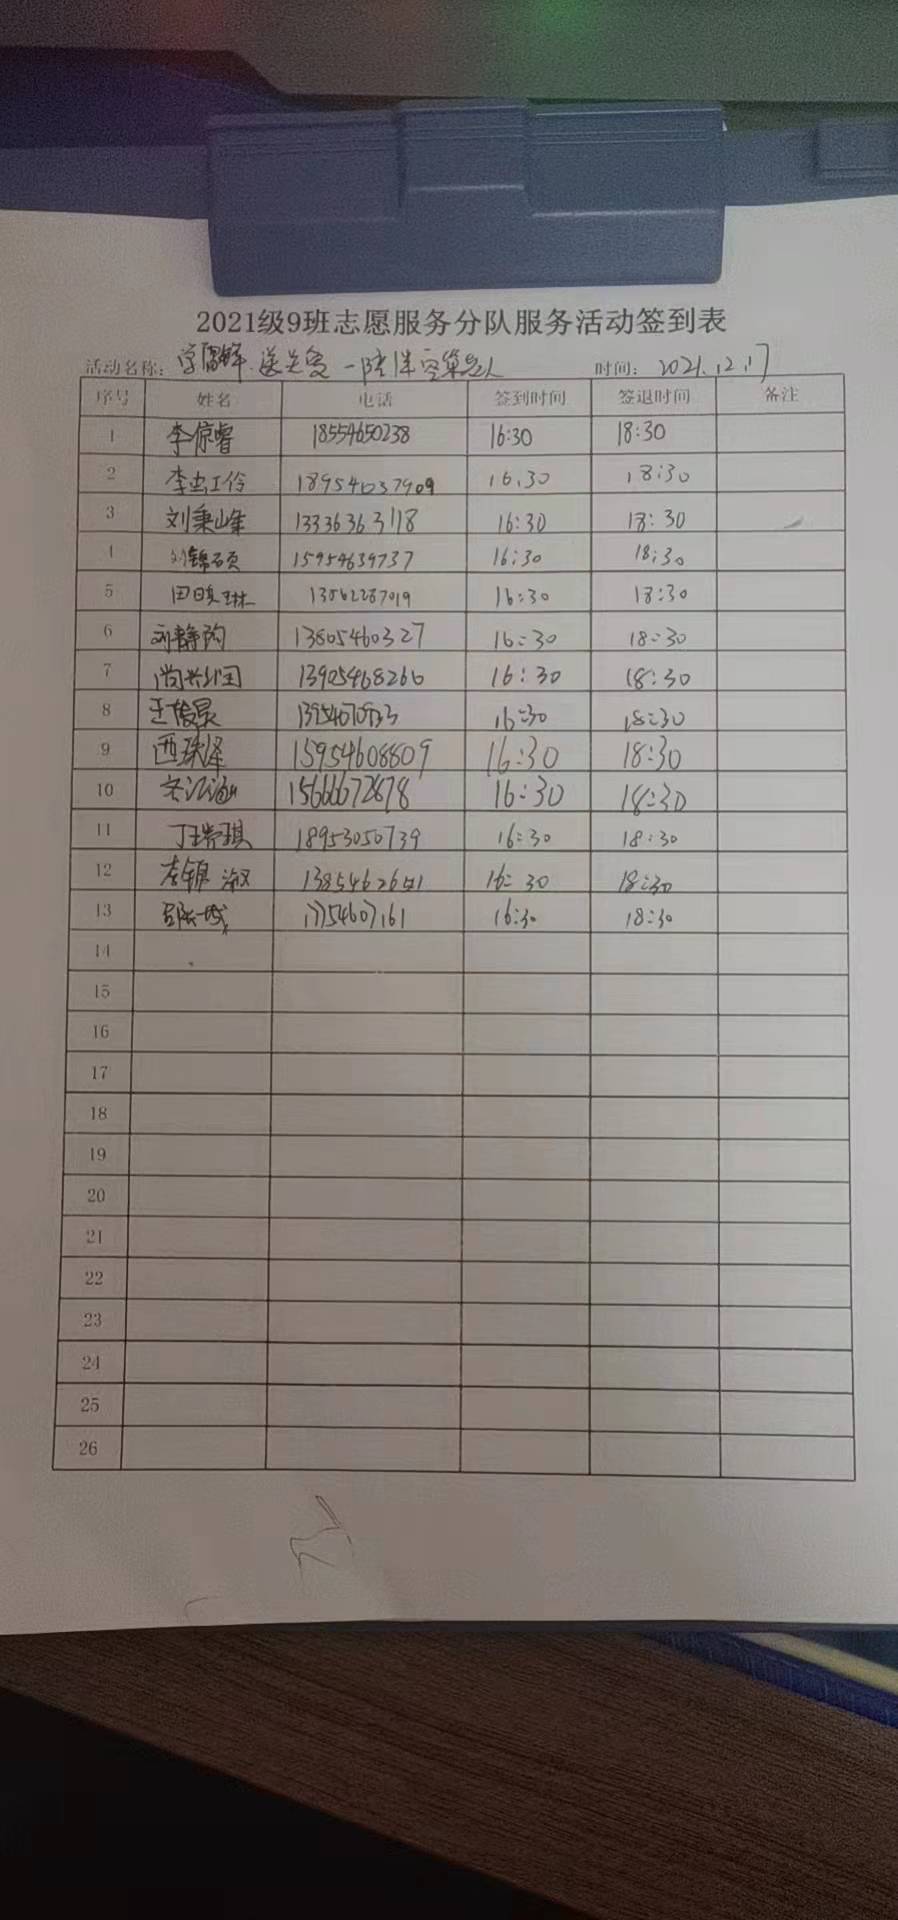 2021级9班志愿服务分队服务活动签到表
活动名称：学雷锋.送关爱一陪伴空巢老人 时间：2021.12.17
序号 姓名 电话 签到时间 签退时间 备注
1 李倞睿 18554650238 16:30 18:30
2 18954637909 16:30 18:30
3 刘秉峰 13336363118 16:30 18:30
4 刘锦硕 15954639737 16:30 18:30
5 田 13562287019 16:30 18:30
6 刘静 13805460327 16:30 18:30
7 尚 13905468266 16:30 18:30
8 王俊 16:30 18:30
9 西珠泽 15954608809 16:30 18:30
10 15666672878 16:30 18:30
11 丁 18953050739 16:30 18:30
12 16:30 18:30
13 16:30 18:30
14
15
16
17
18
19
20
21
22
23
24
25
26